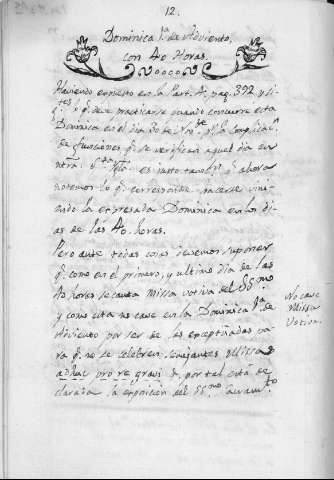 12.
Dominica 1ª de Adviento,
con 40 Horas.
Haviendo expuesto en la Part. A. pag. 392 y si-
g.tes lo q.e debe practicarse quando concurre esta
Dominica en el dia 30 de Nov.bre p.r la complicac.n
de funciones q.e se verifican aquel dia en
ntra. S.ta Igl.a es justo tamb.n q.e ahora
notemos lo q.e corresponde hacerse vini-
endo la expresada Dominica en los di-
as de las 40 horas.
Pero ante todas cosas devemos suponer
q.e como en el primero, y ultimo dia de las
40 horas se canta Missa votiva del SS.mo
y como esta no cave en la Dominica 1ª de
Adviento por ser de las exceptuadas pa-
ra q.e no se celebren semejantes Missas
adhuc pro re gravi q.e por tal está de-
clarada la exposicion del SS.mo Sacram.to
No cave
Missa
Votiva.